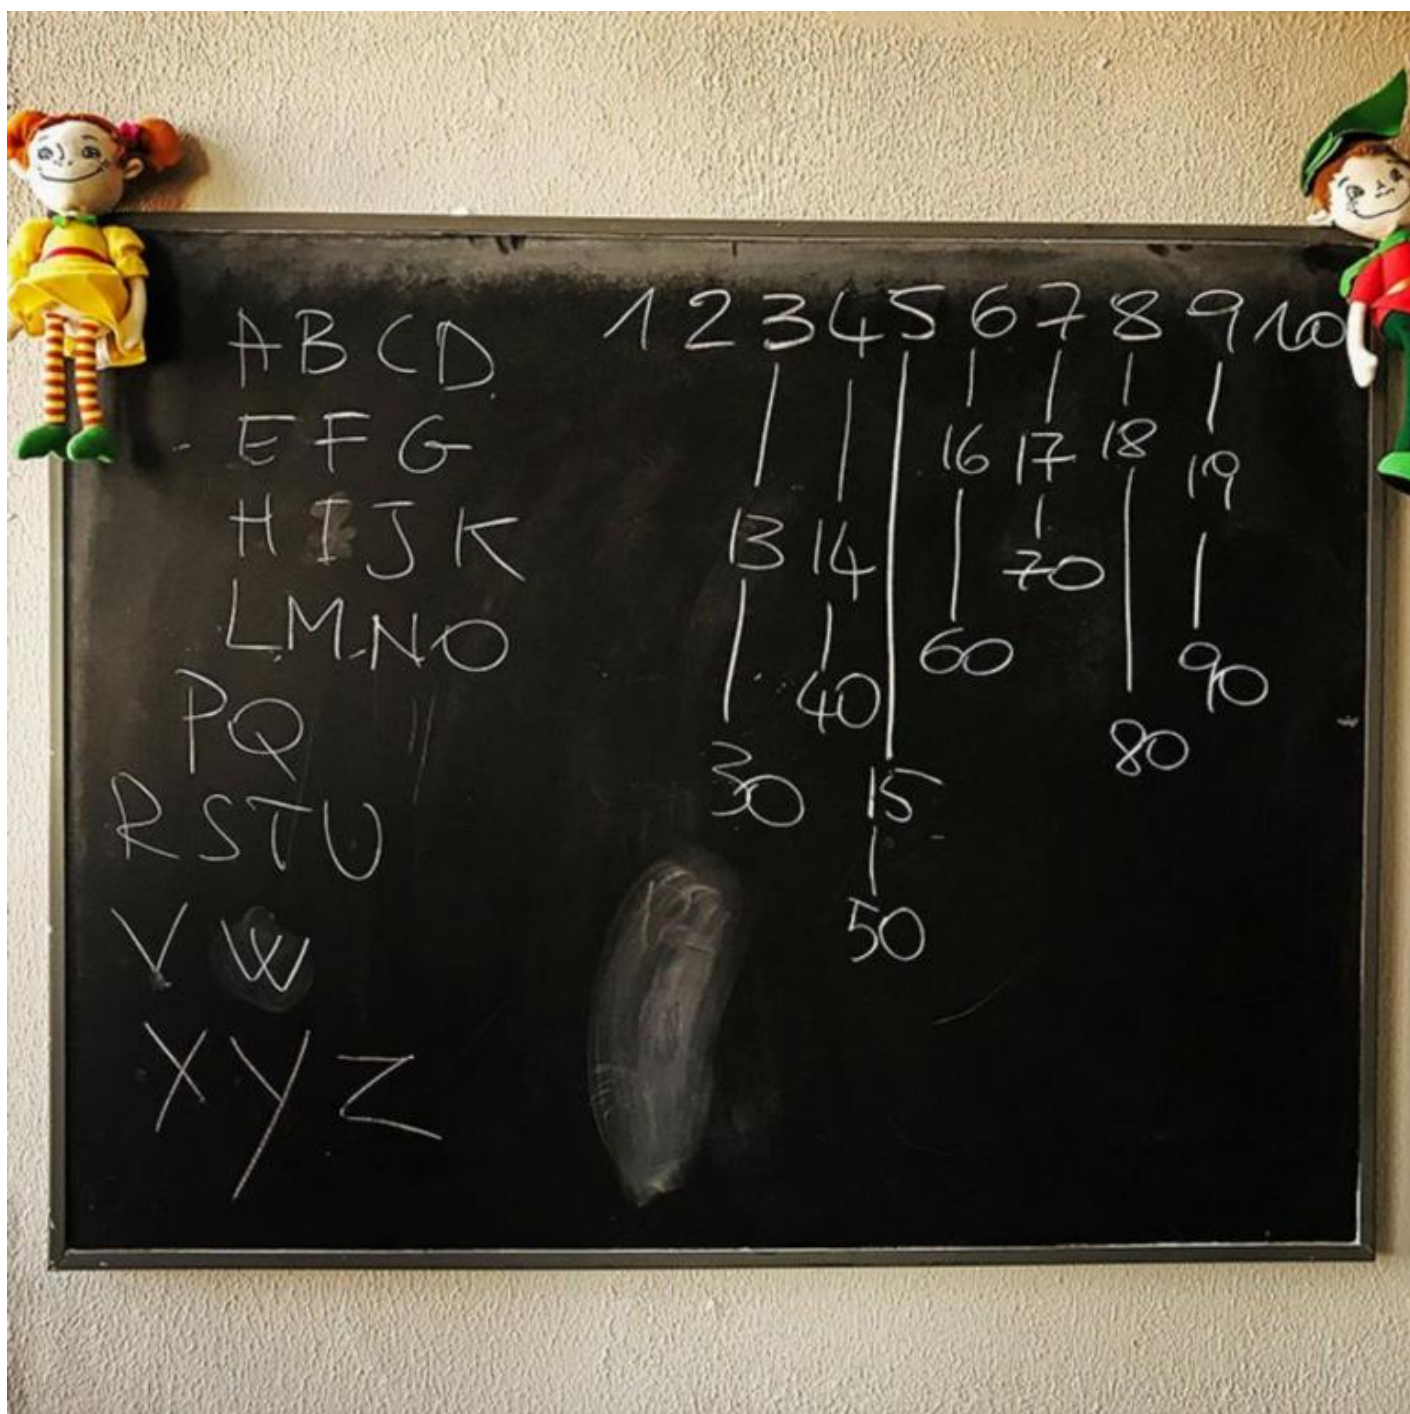 A B C D
E F G
H I J K
L M N O
P Q
R S T U
V W
X Y Z
1 2 3 4 5 6 7 8 9 10
16 17 18 19
13 14 70
60 90
40 80
30 15
50